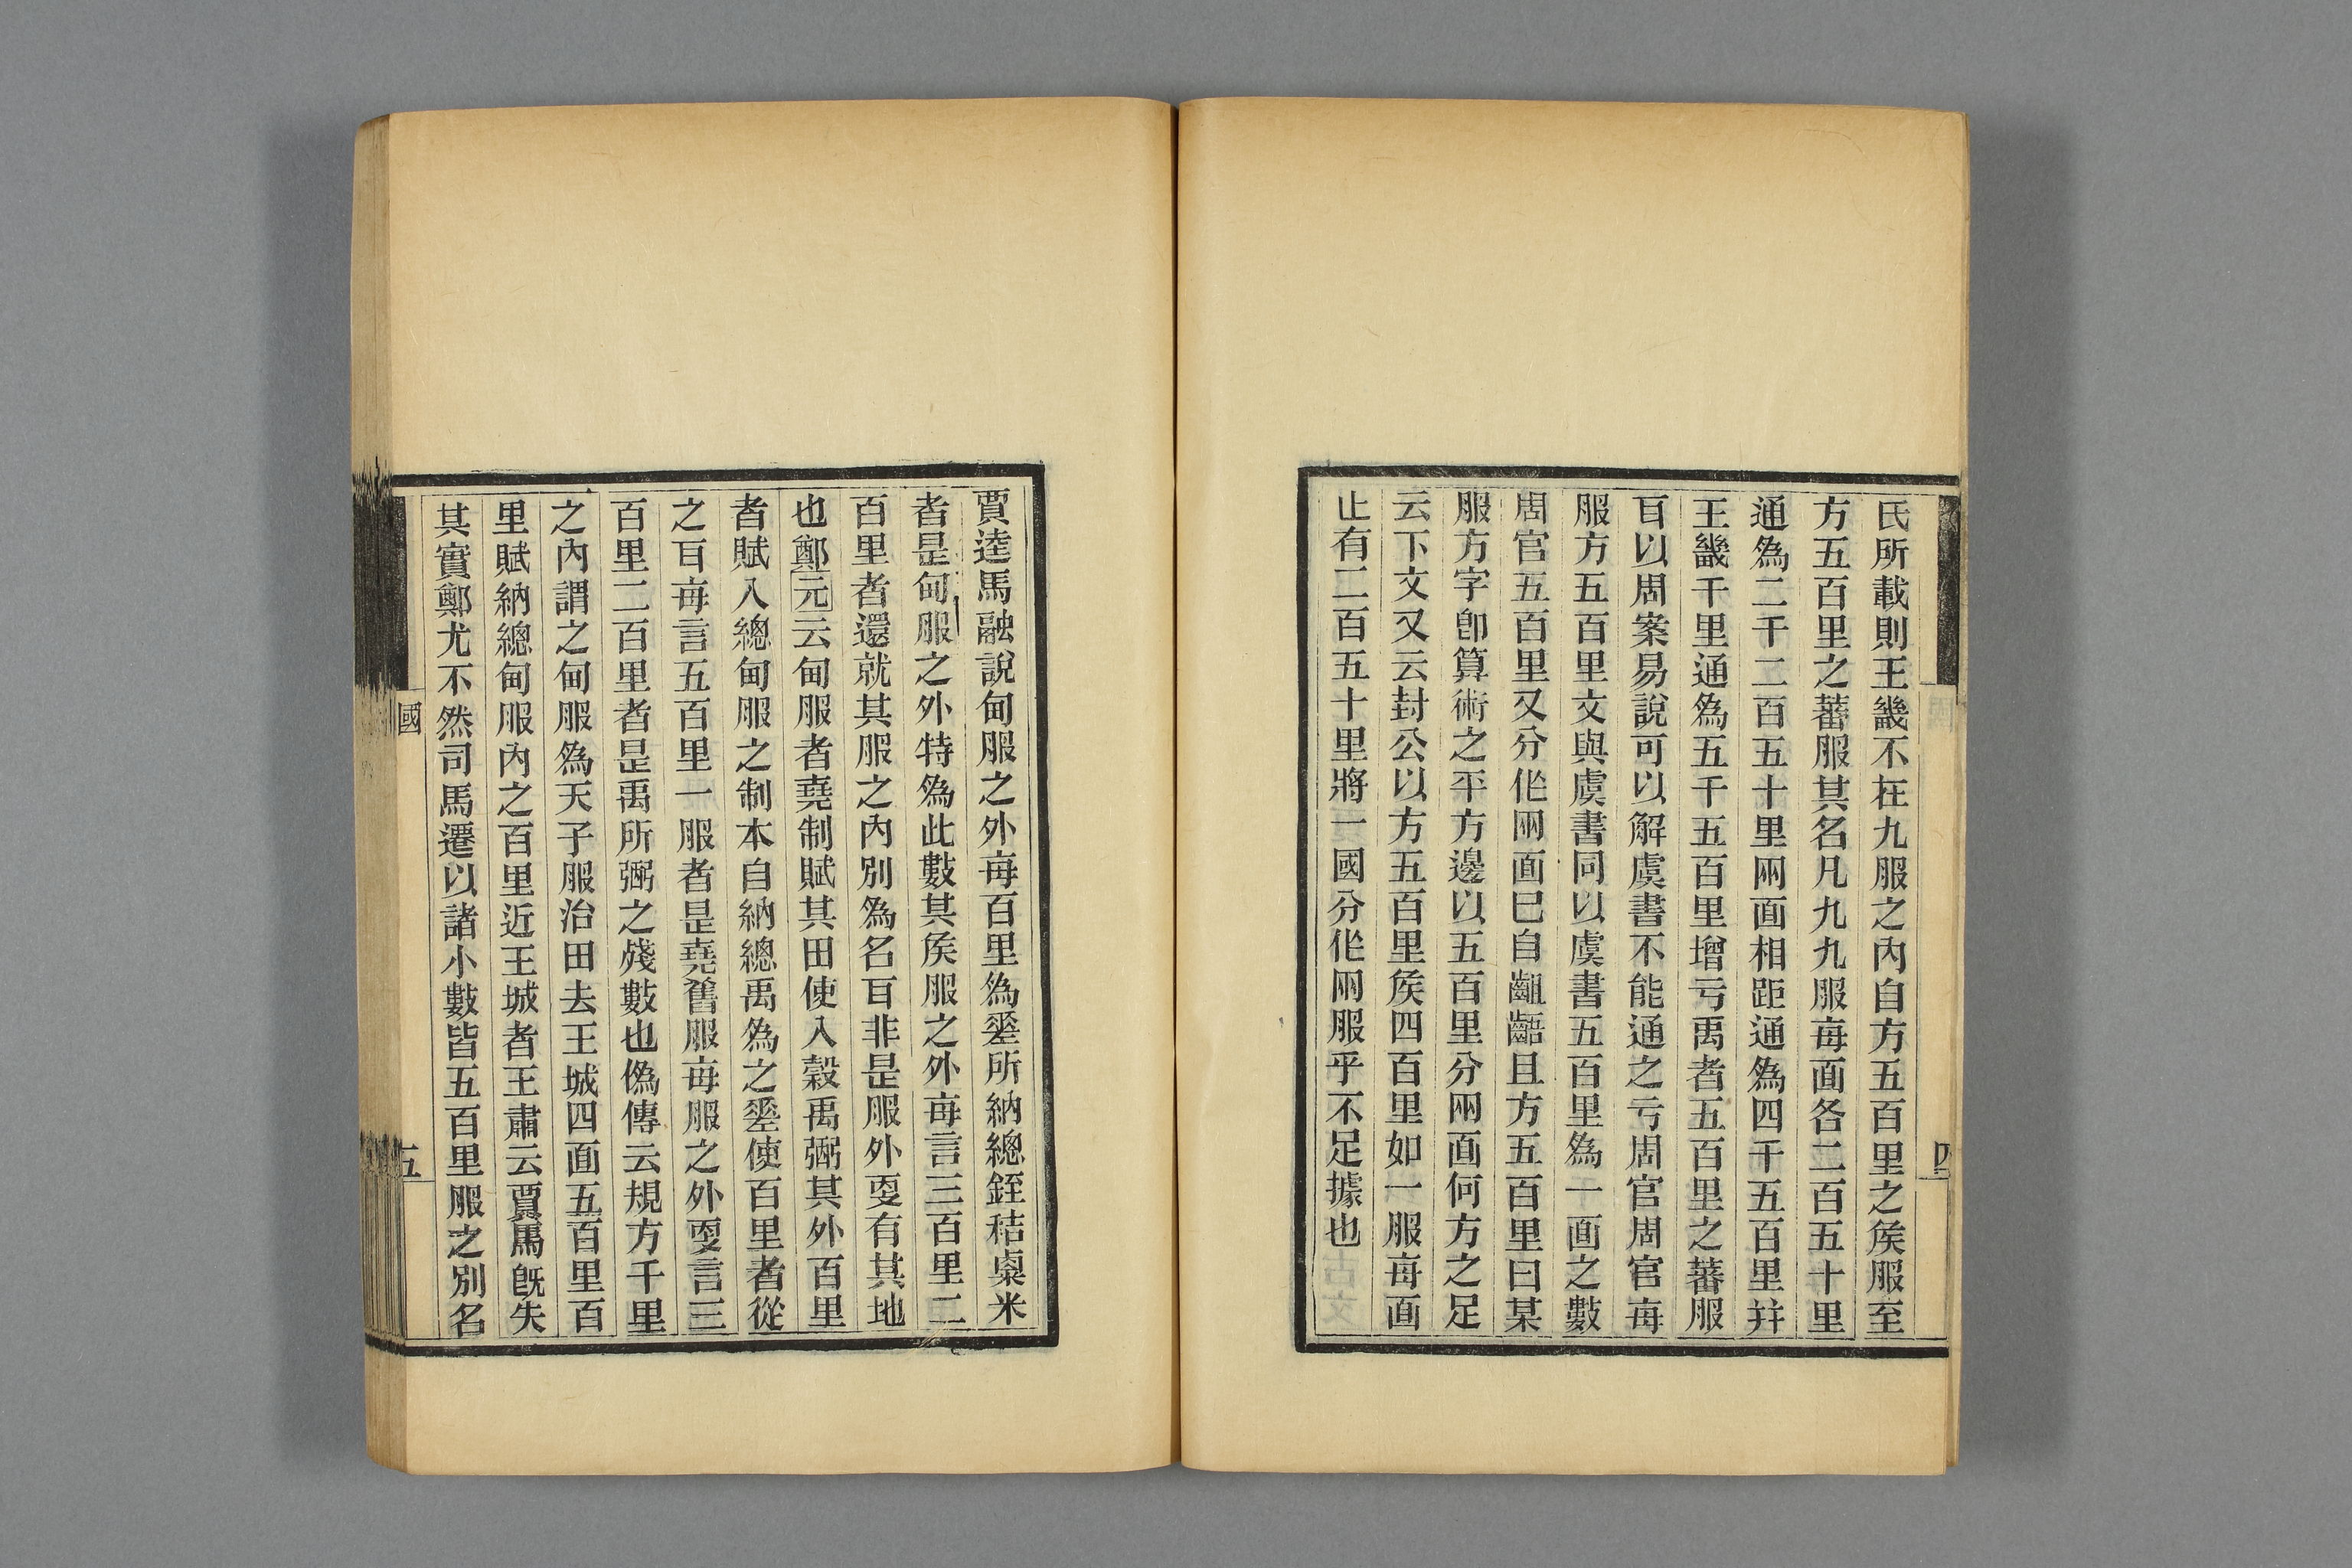 氏所載則王畿不在九服之內自方五百里之矦服至
方五百里之蕃服其名凡九九服每面各二百五十里
通爲二千二百五十里兩面相距通爲四千五百里幷
王畿千里通爲五千五百里增亏禹者五百里之蕃服
耳以周案易說可以解虞書不能通之亏周官周官每
服方五百里文與虞書同以虞書五百里爲一面之數
周官五百里又分作兩面已自齟齬且方五百里曰某
服方字卽算術之平方邊以五百里分兩面何方之足
云下文又云封公以方五百里矦四百里如一服每面
止有二百五十里將一國分作兩服乎不足據也
四
賈逵馬融說甸服之外每百里爲㢡所納總銍秸粟米
者是甸服之外特爲此數其矦服之外每言三百里二
百里者還就其服之內別爲名耳非是服外㪅有其地
也鄭元云甸服者堯制賦其田使入穀禹弼其外百里
者賦入總甸服之制本自納總禹爲之㢡使百里者從
之耳每言五百里一服者是堯舊服每服之外㪅言三
百里二百里者是禹所弼之殘數也僞傳云規方千里
之內謂之甸服爲天子服治田去王城四面五百里百
里賦納總甸服內之百里近王城者王肅云賈馬旣失
其實鄭尤不然司馬遷以諸小數皆五百里服之別名
國
五